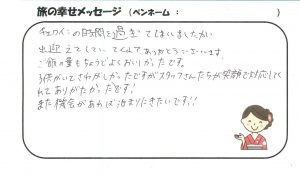 旅の幸せメッセージ（ペンネーム：　　　　　）
チェックインの時間を過ぎてしまいましたが
出迎えてしていてくれてありがとうございます。
ご飯の量もちょうどよくおいしかったです。
子供がいてさわがしかったですがスタッフさんたちが笑顔で対応してく
れてありがたかったです！
また機会があれば泊まりにきたいです!!